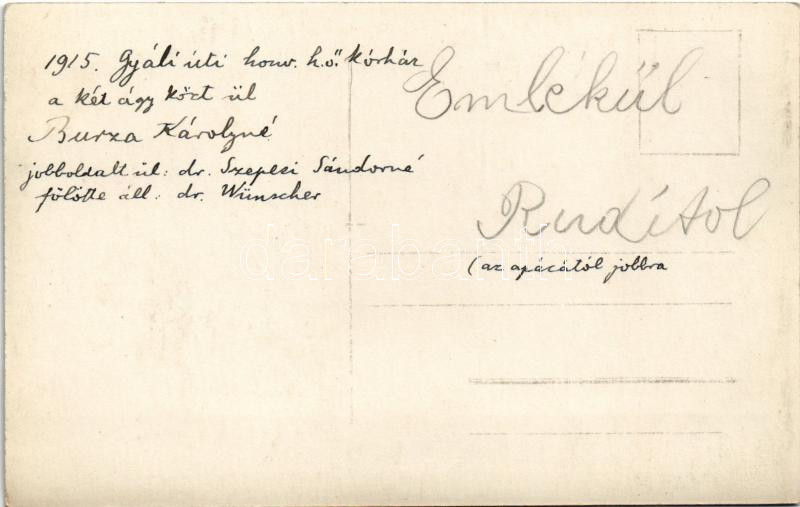 1915. Gyáli úti honv. h.ő. kórház
a két ágy közt ül
Burza Károlyné
jobboldalt ül: dr. Szepesi Sándorné
fölötte áll: dr. Wünscher
Emlékül
Rudítol
(az apácától jobbra
darabanth